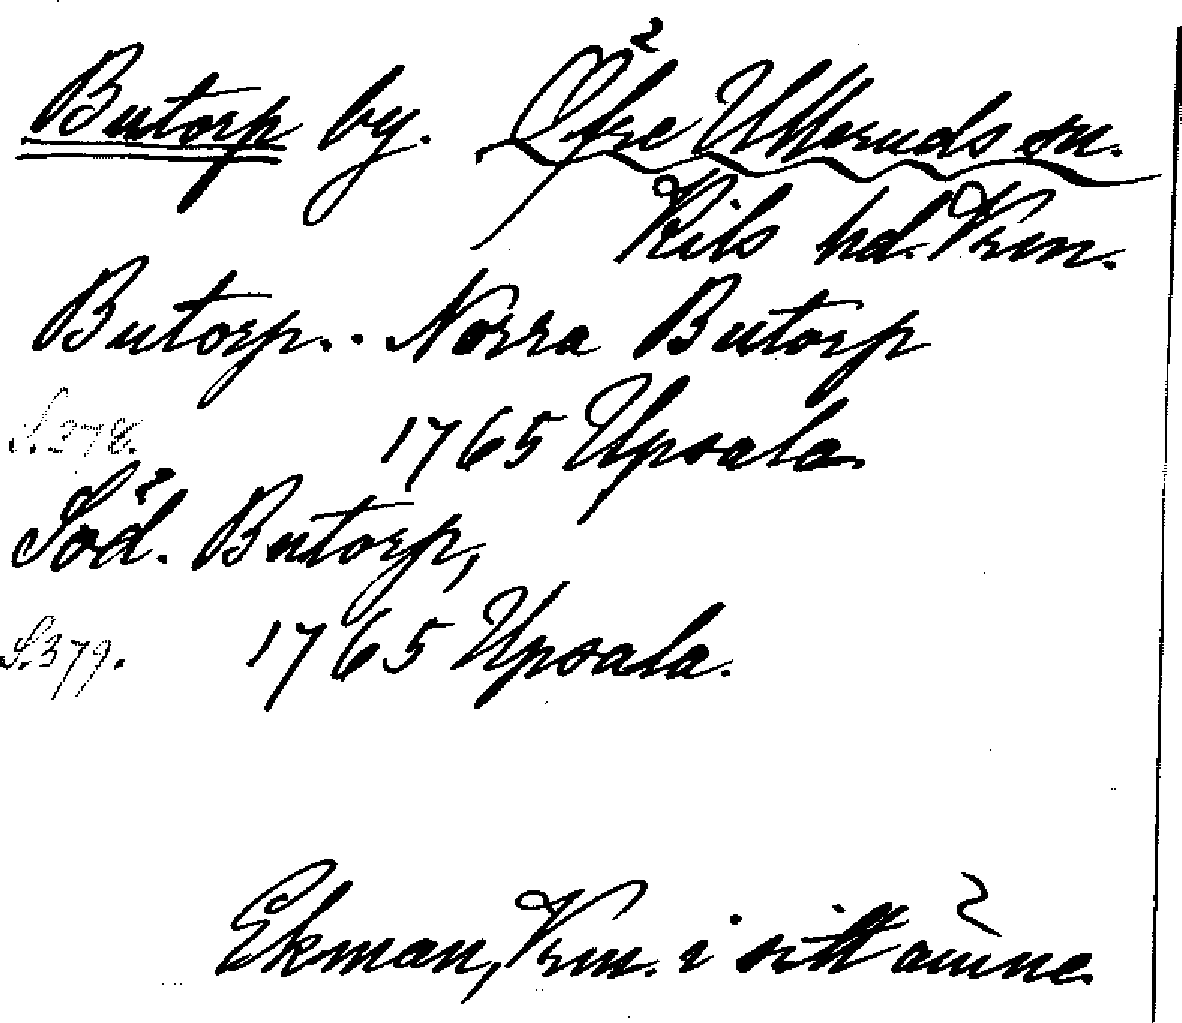 Butorp by. Öfre Ulleruds sn.
Kils hd. Vrm.
Butorp.. Norra Butorp
S. 378. 1765 Upsala.
Söd. Butorp,
S. 379. 1765 Upsala.
Ekman, Vrm. i sitt ämne.